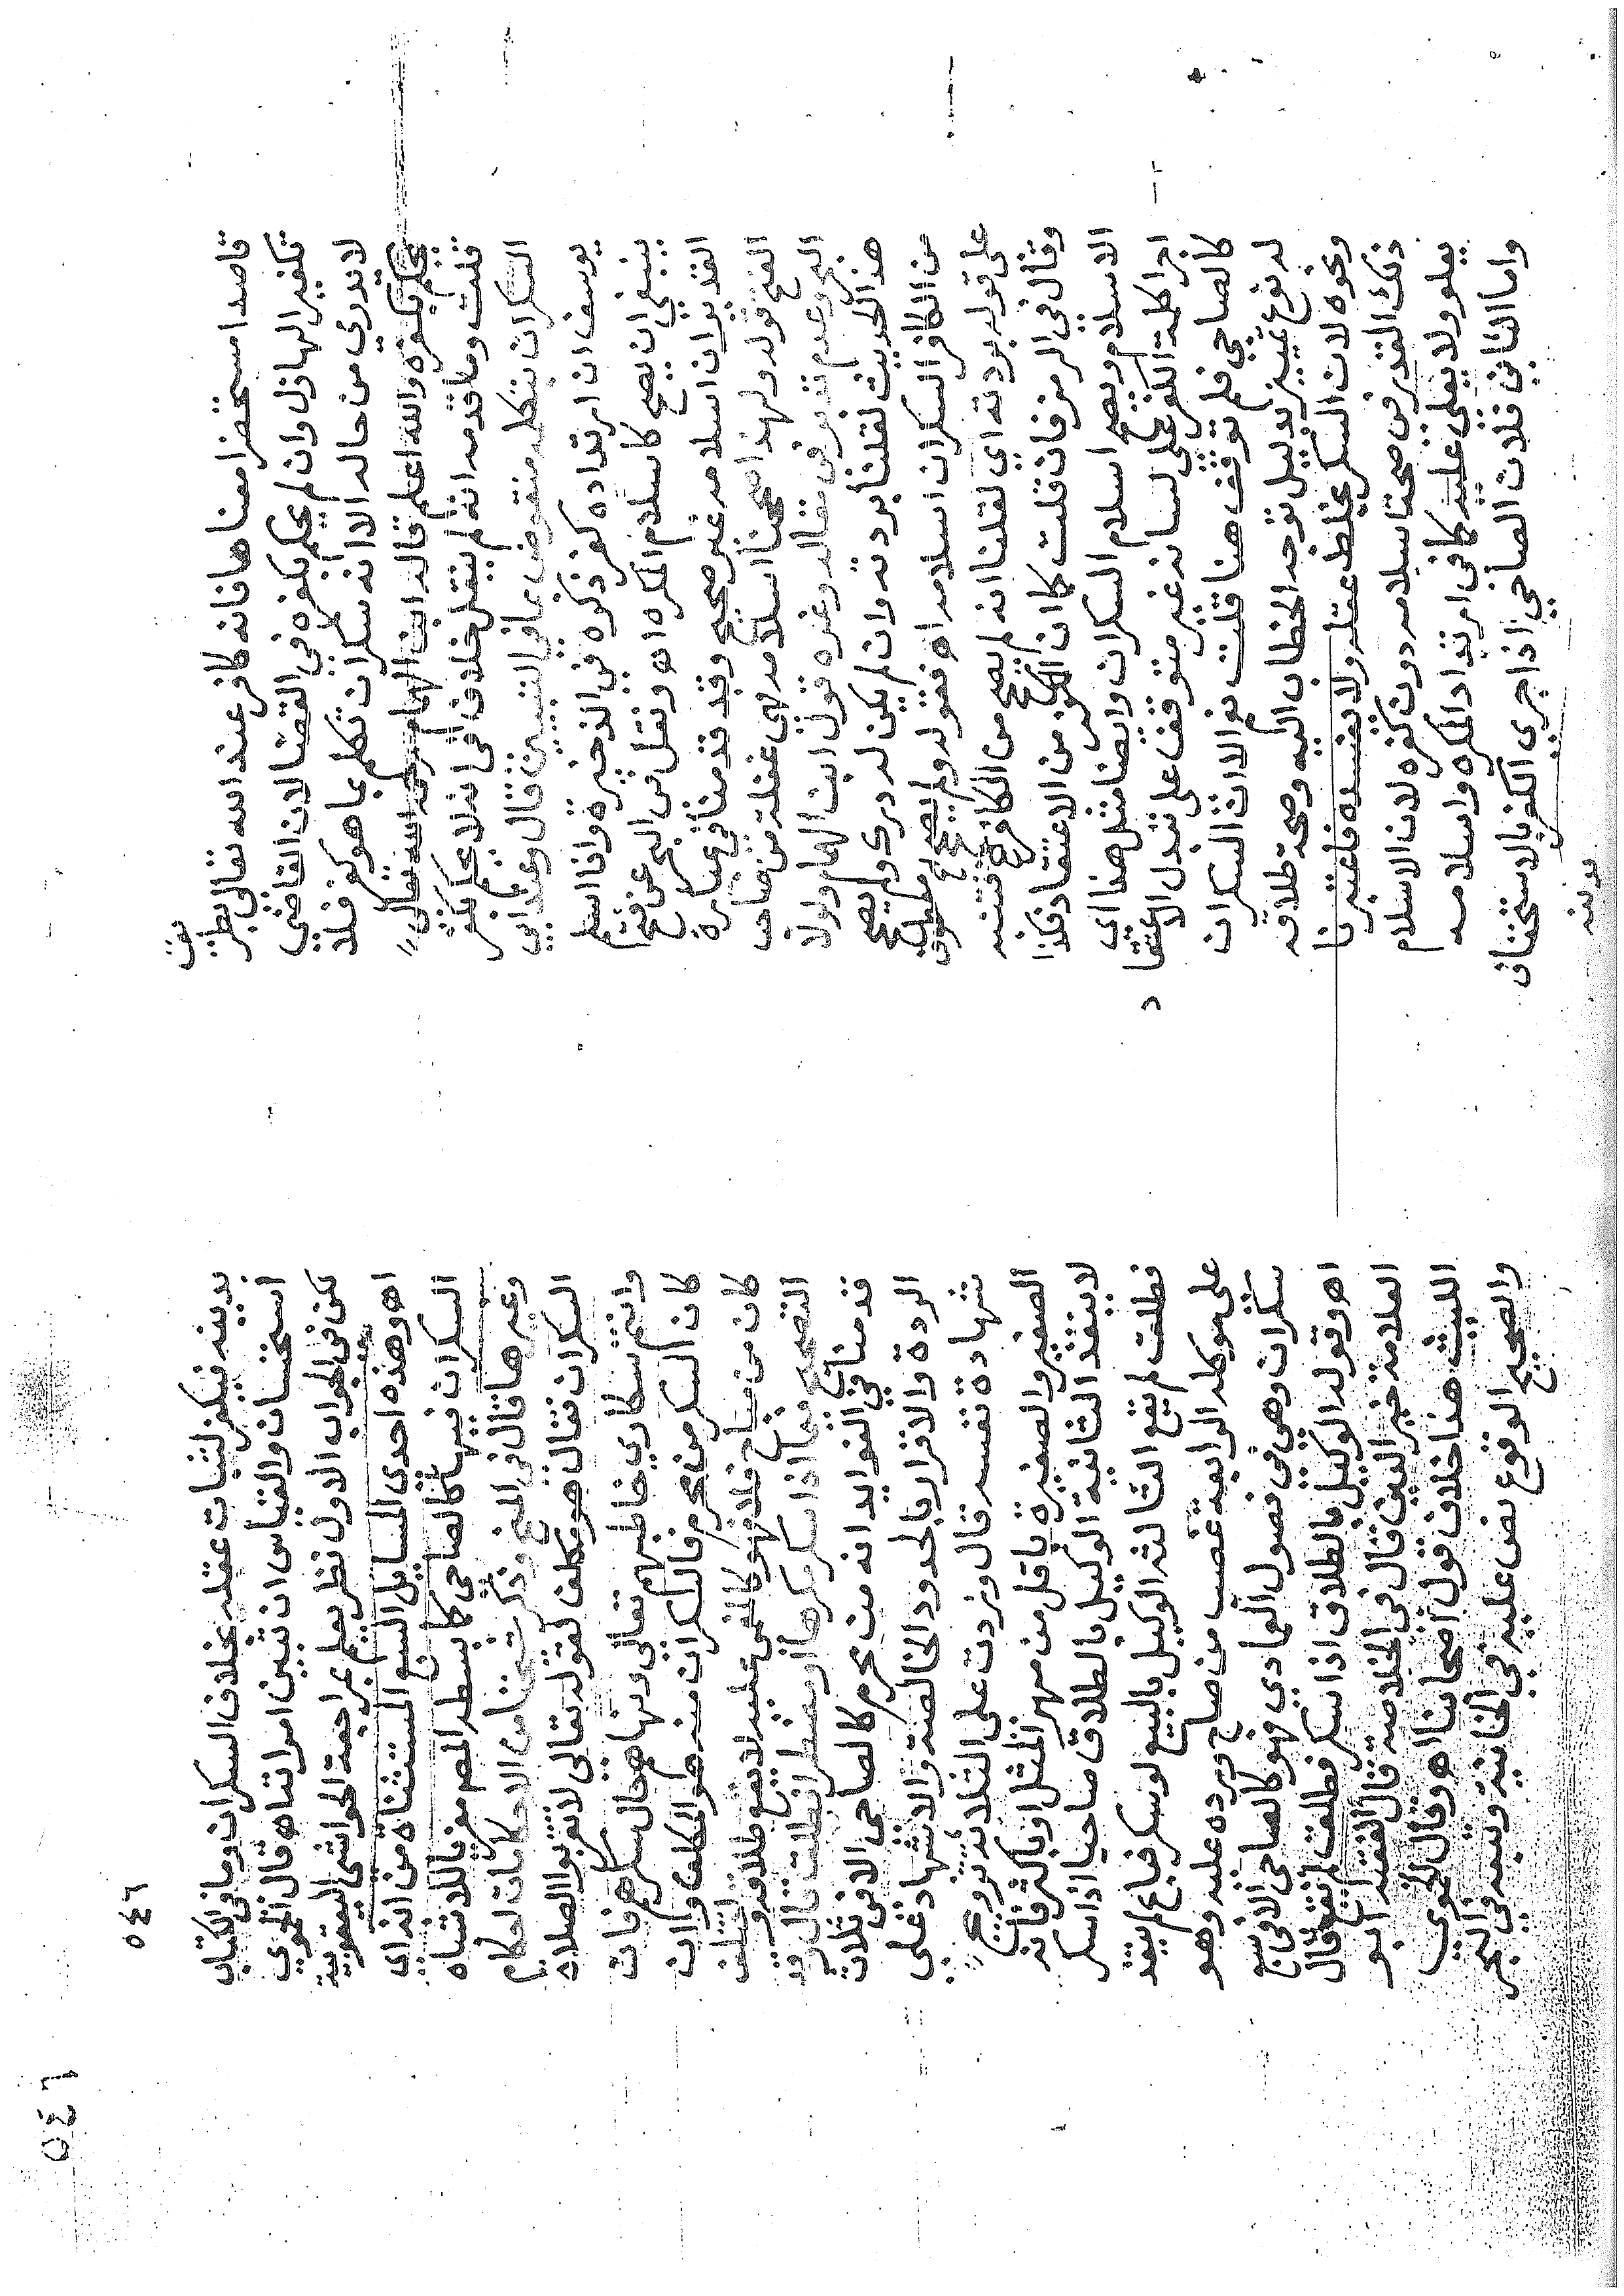 قاصدا مستحضرا معناها فانه كافر عند الله تعالى بطريق
تكفير الهازل وان لم يحكم بكفره في القضا لان القاضي
لا يدري من حاله الا انه سكران تكلم بما هو كفر فلا
يحكم بكفره والله اعلم قاله ابن الهمام رحمه الله تعالى
قلت وما قدمه انه لم ينقل خلاف في انه لا يحكم بكفر
السكران بتكلمه منقوض بما في التبيين قال وعند ابي
يوسف ان ارتداده كفر ذكره في الذخيرة واما اسلامه
ينبغي ان يصح كاسلام المكره اه ونقل في البحر عن فتح
القدير ان اسلامه غير صحيح وقد قدمنا في عبارة
الفتح قوله ولهذا صححنا اسلامه فهي غفلة من صاحب
البحر وعدم تدبر في نقاله وغره قول ابن الهمام ولولا
هذا الحديث لقلنا بردته وان لم يكن له درى ولم يصح
من الكافر السكران اسلامه اه فقوله ولم يصح معطوف
على قوله بردته اي لقلنا انه لم يصح من الكافر فتنبه
وقال في الرمز فان قلت كما ان الكفر من الاعتقاد فكذا
الاسلام ويصح اسلام السكران وايضا مثل هذا اى
اجرا كلمة الكفر على لسانه غير متوقف على تبدل الاعتقاد
كالصاحي فلم توقف هنا قلت نعم الا ان السكران
له نوع تمييز بدليل توجه الخطاب اليه وصحة طلاقه
ونحوه لان السكر يخلط عقله ولا يفسده فاعتبرنا
ذلك القدر في صحة اسلامه دون كفره لان الاسلام
يعلو ولا يعلى عليه كما في ارتداد المكره واسلامه
واما الثاني فلان الصاحي اذا جرى الكفر بالاستخفاف
بدينه
٥٤٦
بدينه فيكفر لثبات عقله بخلاف السكران وما في الكتاب
استحسان والقياس ان تبين امراته اه قال الحموي
لكن في الجواب الاول نظر يعلم بمراجعة الحواشي اليعقوبية
اه وهذه احدى المسايل السبع المستثناة من انه اي
السكران فيها كالصاحي كما بسطه المصنف معزيا للاشباه
وغيرها قال في المنح وذكر شيخنا من الاحكامات احكام
السكران فقال هو مكلف لقوله تعالى لا تقربوا الصلاة
وانتم سكارى خاطبهم تعالى ونهاهم حال سكرهم فان
كان السكر من محرم فالسكران منه هو المكلف وان
كان من مباح فلا فهو كالمغمى عليه لا يقع طلاقه واختلف
التصحيح فيما اذا سكر مكرها او مضطرا فطلق قال وقد
قدمنا في الفوايد انه من محرم كالصاحي الا في ثلاث
الردة والاقرار بالحدود الخالصة والاشهاد على
شهادة نفسه قال وزدت على الثلاثة تزويج
الصغير والصغيرة باقل من مهر المثل او باكثر فانه
لا ينفذ الثانية الوكيل بالطلاق صاحيا اذا سكر
فطلق لم يقع الثالثة الوكيل بالبيع لو سكر فباع لم ينفذ
على موكله الرابعة غصب من صاح ورده عليه وهو
سكران وهي في فصول العمادي فهو كالصاحي الا في سبع
اه وقوله الوكيل بالطلاق اذا سكر فطلق لم يقع قال
العلامة خير الدين قال في الخلاصة قال الفقيه ابو
الليث هنا خلاف قول اصحابنا اه وقال الحموي
والصحيح الوقوع نص عليه في الخانية وتبعه في البحر